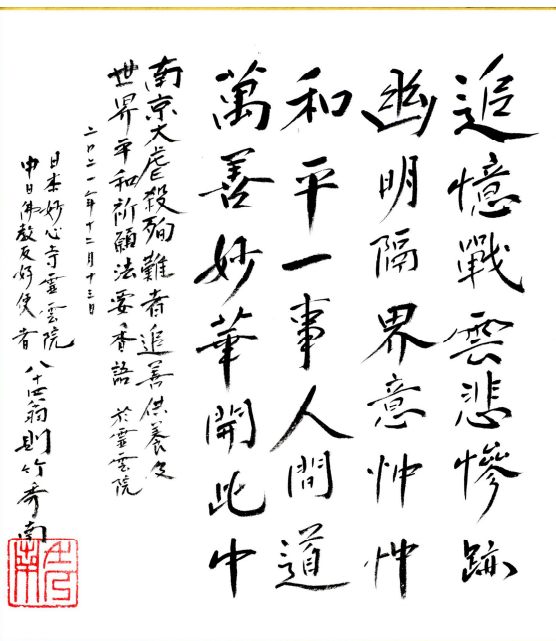 追憶戰雲悲慘跡
幽明隔界意忡忡
和平一事人間道
萬善妙華開此中
南京大虐殺殉難者追善供養及
世界平和祈願法要香語 於靈雲院
二〇二一年十二月十三日
日本妙心寺靈雲院
中日佛教友好使者 八十四翁則竹秀南